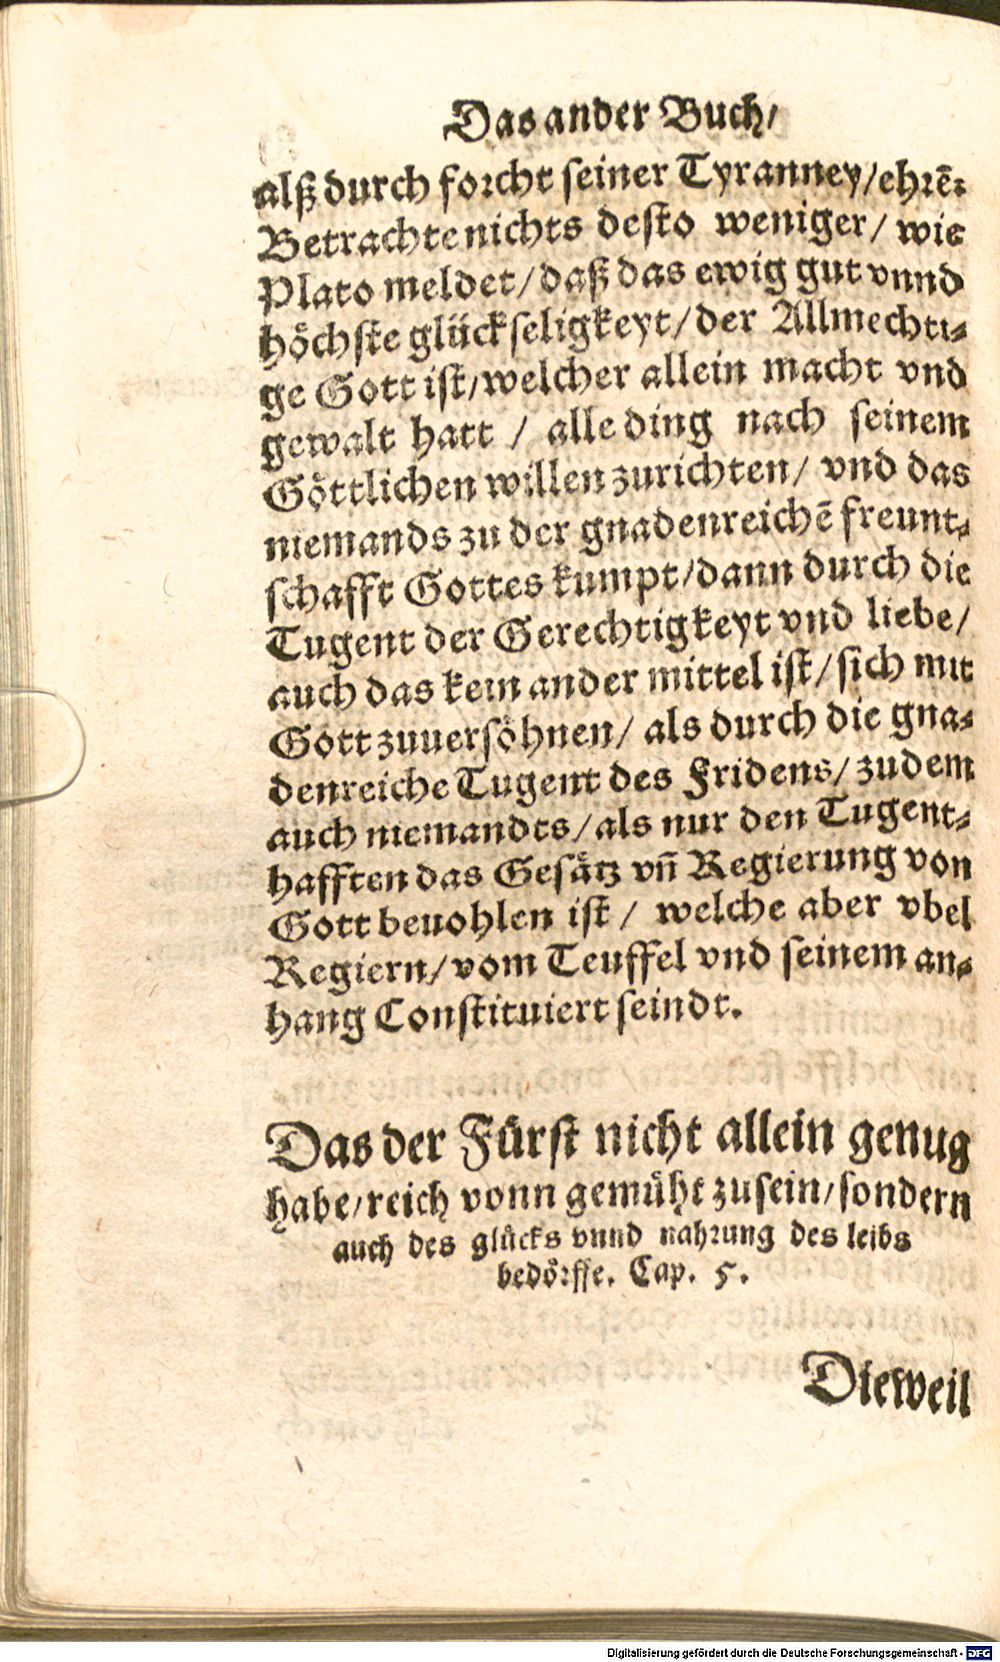 Das ander Buch/
alß durch forcht seiner Tyranney/ehrē:
Betrachte nichts desto weniger/ wie
Plato meldet/ daß das ewig gut vnnd
höchste glückseligkeyt/ der Allmechti-
ge Gott ist/ welcher allein macht vnd
gewalt hatt / alle ding nach seinem
Göttlichen willen zurichten/ vnd das
niemands zu der gnadenreichē freunt-
schafft Gottes kumpt/ dann durch die
Tugent der Gerechtigkeyt vnd liebe/
auch das kein ander mittel ist/ sich mit
Gott zuuersöhnen/ als durch die gna-
denreiche Tugent des Fridens/ zudem
auch niemandts/ als nur den Tugent-
hafften das Gesätz vñ Regierung von
Gott beuohlen ist / welche aber vbel
Regiern/ vom Teuffel vnd seinem an-
hang Constituiert seindt.
Das der Fürst nicht allein genug
habe/ reich vonn gemüht zusein/ sondern
auch des glücks vnnd nahrung des leibs
bedörffe. Cap. 5.
Dieweil
Digitalisierung gefördert durch die Deutsche Forschungsgemeinschaft - DFG